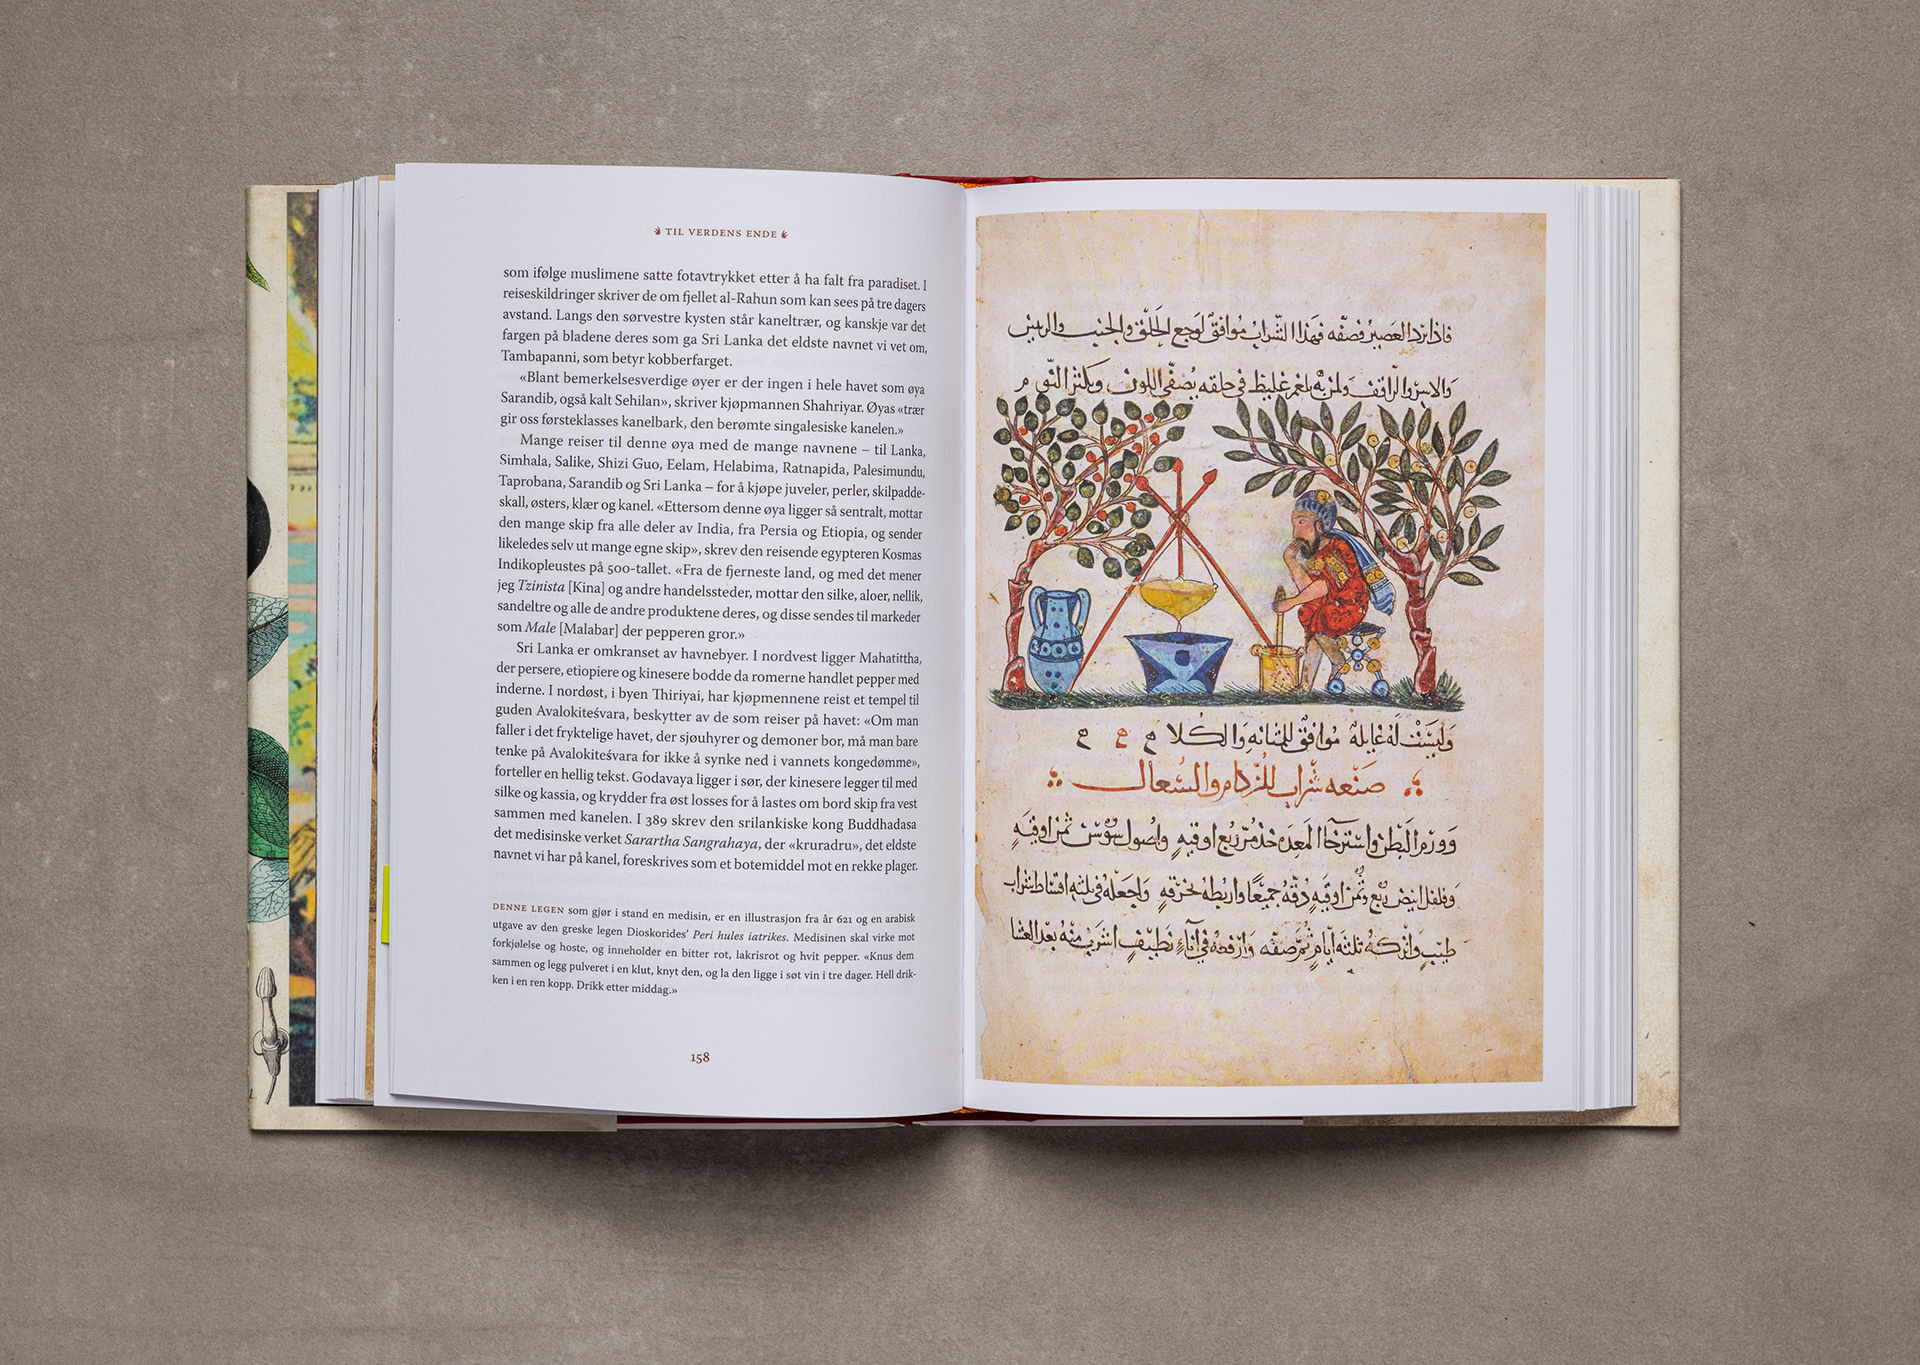 TIL VERDENS ENDE
som ifølge muslimene satte fotavtrykket etter å ha falt fra paradiset. I
reiseskildringer skriver de om fjellet al-Rahun som kan sees på tre dagers
avstand. Langs den sørvestre kysten står kaneltrær, og kanskje var det
fargen på bladene deres som ga Sri Lanka det eldste navnet vi vet om,
Tambapanni, som betyr kobberfarget.
«Blant bemerkelsesverdige øyer er der ingen i hele havet som øya
Sarandib, også kalt Sehilan», skriver kjøpmannen Shahriyar. Øyas «trær
gir oss førsteklasses kanelbark, den berømte singalesiske kanelen.»
Mange reiser til denne øya med de mange navnene – til Lanka,
Simhala, Salike, Shizi Guo, Eelam, Helabima, Ratnapida, Palesimundu,
Taprobana, Sarandib og Sri Lanka – for å kjøpe juveler, perler, skilpadde-
skall, østers, klær og kanel. «Ettersom denne øya ligger så sentralt, mottar
den mange skip fra alle deler av India, fra Persia og Etiopia, og sender
likeledes selv ut mange egne skip», skrev den reisende egypteren Kosmas
Indikopleustes på 500-tallet. «Fra de fjerneste land, og med det mener
jeg Tzinista [Kina] og andre handelssteder, mottar den silke, aloer, nellik,
sandeltre og alle de andre produktene deres, og disse sendes til markeder
som Male [Malabar] der pepperen gror.»
Sri Lanka er omkranset av havnebyer. I nordvest ligger Mahatittha,
der persere, etiopiere og kinesere bodde da romerne handlet pepper med
inderne. I nordøst, i byen Thiriyai, har kjøpmennene reist et tempel til
guden Avalokiteśvara, beskytter av de som reiser på havet: «Om man
faller i det fryktelige havet, der sjøuhyrer og demoner bor, må man bare
tenke på Avalokiteśvara for ikke å synke ned i vannets kongedømme»,
forteller en hellig tekst. Godavaya ligger i sør, der kinesere legger til med
silke og kassia, og krydder fra øst losses for å lastes om bord skip fra vest
sammen med kanelen. I 389 skrev den srilankiske kong Buddhadasa
det medisinske verket Sarartha Sangrahaya, der «kruradru», det eldste
navnet vi har på kanel, foreskrives som et botemiddel mot en rekke plager.
DENNE LEGEN som gjør i stand en medisin, er en illustrasjon fra år 621 og en arabisk
utgave av den greske legen Dioskorides' Peri hules iatrikes. Medisinen skal virke mot
forkjølelse og hoste, og inneholder en bitter rot, lakrisrot og hvit pepper. «Knus dem
sammen og legg pulveret i en klut, knyt den, og la den ligge i søt vin i tre dager. Hell drik-
ken i en ren kopp. Drikk etter middag.»
158
فاذا برد العصير فصفه فهذا الشراب موافق لوجع الحلق والجنب والريتين
غليظ في حلقه يصفي اللون ويكثر النوم
وليست له غايلة موافق للمثانه والكلا
صنعه شراب للزكام والسعال
وورم البطن واسترخا المعده خذ مر ربع اوقيه واصول سوسن ثمن اوقيه
وفلفل ابيض ربع وثمن اوقيه دقه جميعا واربطه بخرقه واجعله في ثلثه اقساط شراب
طيب واتركه ثلثه ايام ثم صفه وارفعه في اناء نظيف اشرب منه بعد العشا